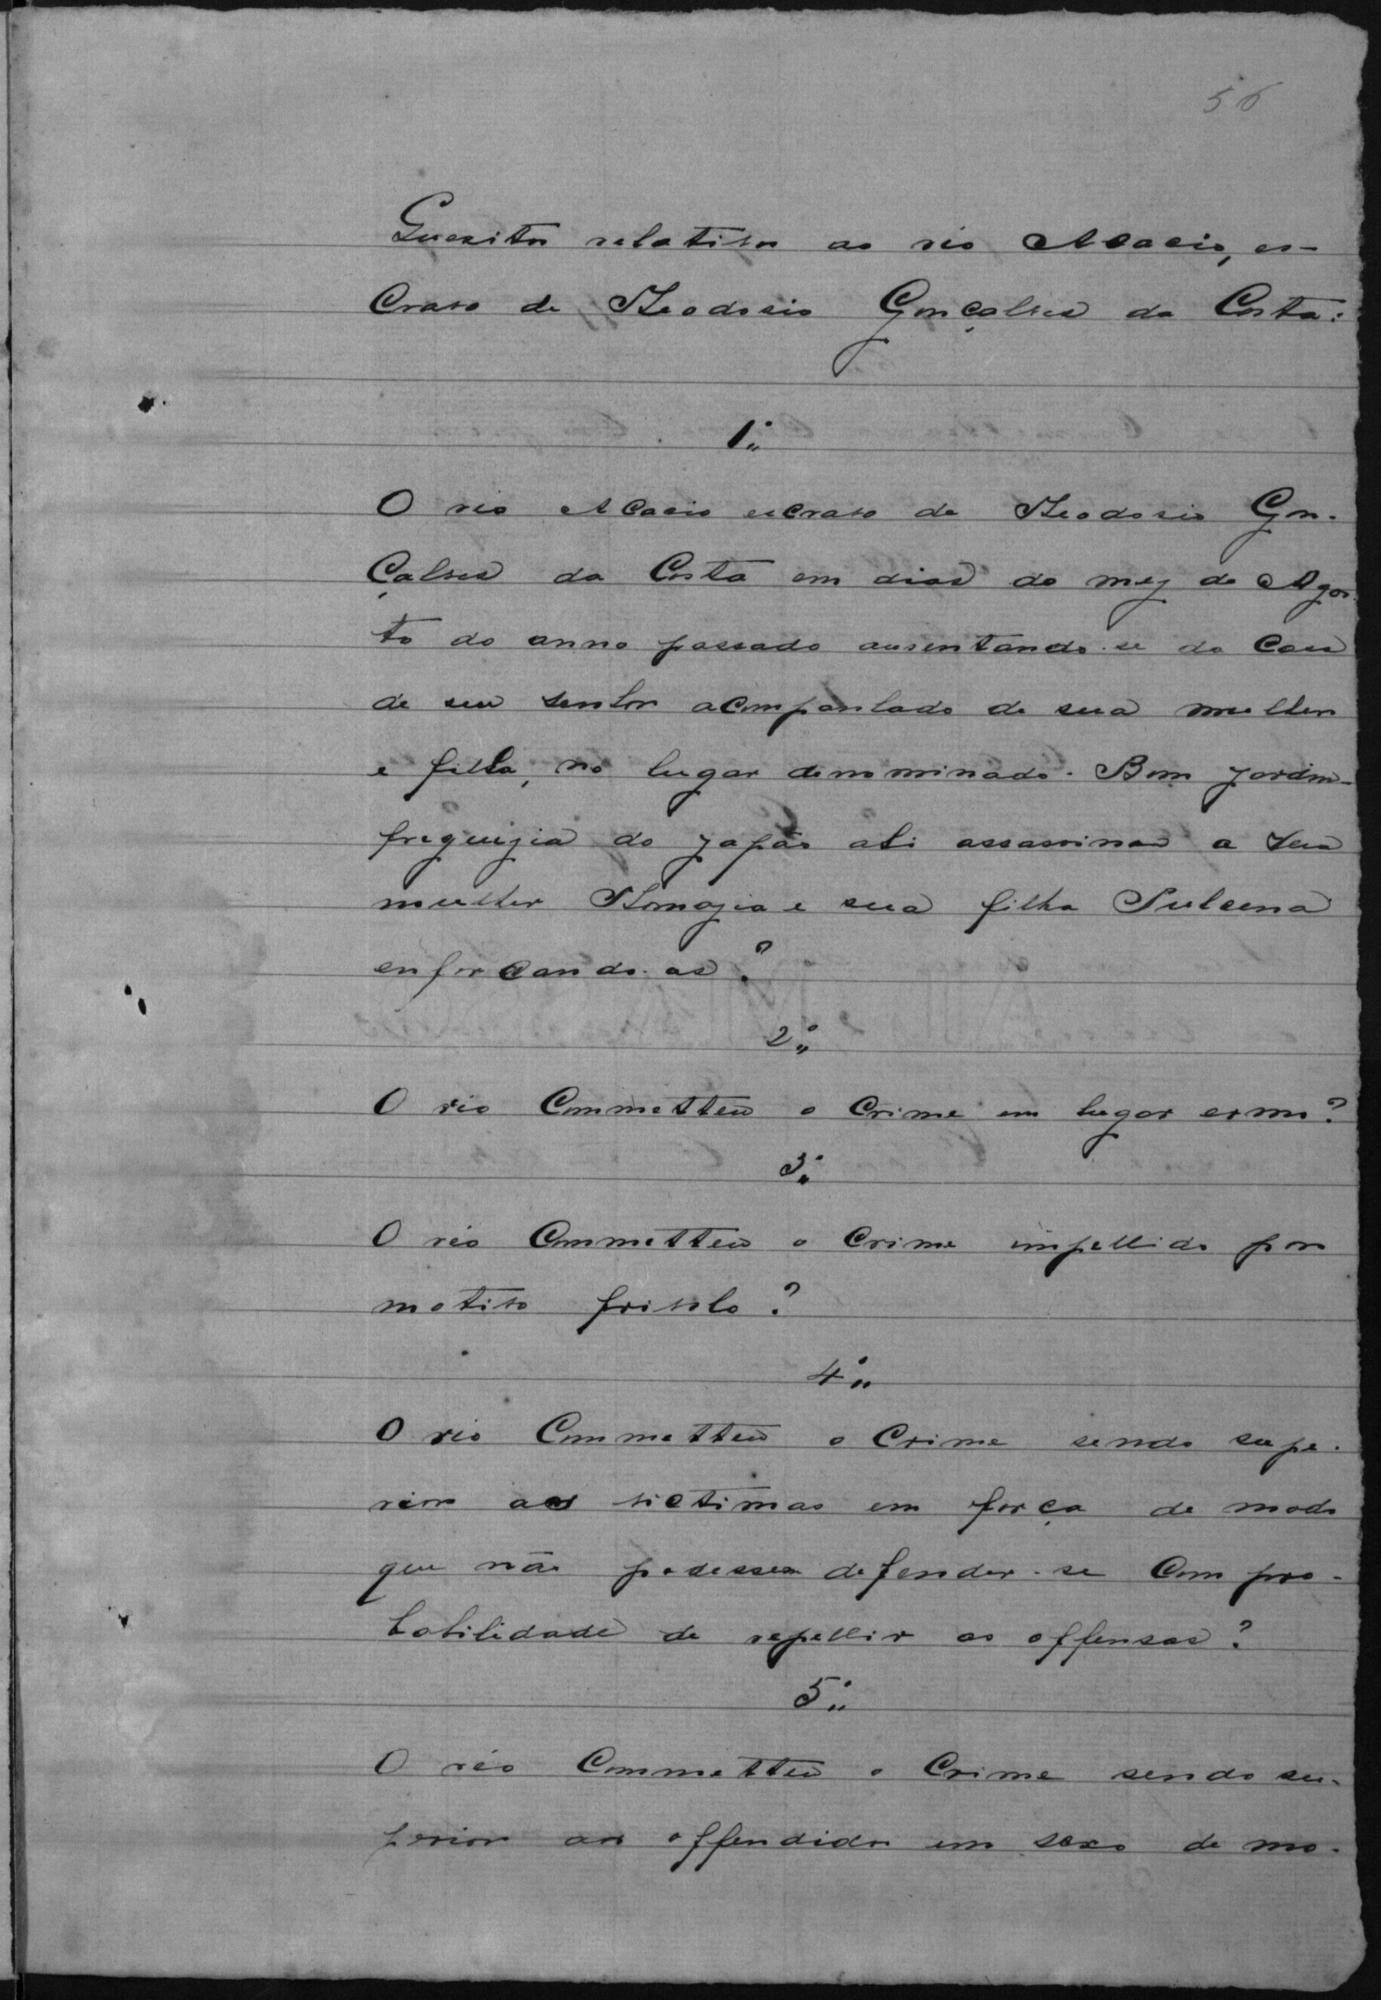 56
Quesitos relativos ao réo Acacio, es-
cravo de Theodosio Gonçalves da Costa:
1º
O réo Acacio escravo de Theodosio Gon-
çalves da Costa em dias do mez de Agos-
to do anno passado ausentando-se da casa
de seu senhor acompanhado de sua mulher
e filha, no lugar denominado - Bom Jardim -
freguezia do Japão ahi assassinou a sua
mulher Thomazia e sua filha
enforcando-as?
2º
O réo commetteu o crime em lugar ermo?
3º
O réo commetteu o crime impellido por
motivo frivolo?
4º
O réo commetteu o crime sendo supe-
rior as victimas em força de modo
que não podesse defender-se com pro-
babilidade de repellir as offensas?
5º
O réo commetteu o crime sendo su-
perior aos offendidos em sexo de mo-